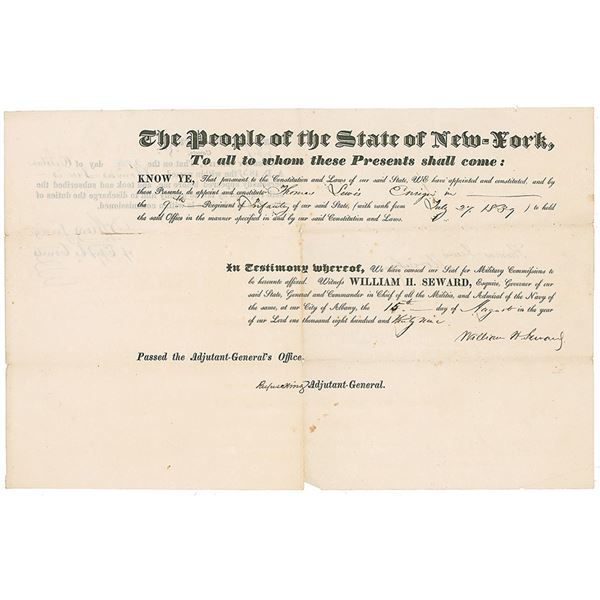 The People of the State of New-York,
To all to whom these Presents shall come:
KNOW YE, That pursuant to the Constitution and Laws of our said State, WE have appointed and constituted, and by
these Presents, do appoint and constitute Thomas Lewis Ensign in
the 9th Regiment of Infantry of our said State, (with rank from July 27. 1839) to hold
the said Office in the manner specified in and by our said Constitution and Laws.
In Testimony whereof, We have caused our Seal for Military Commissions to
be hereunto affixed. Witness WILLIAM H. SEWARD, Esquire, Governor of our
said State, General and Commander in Chief of all the Militia, and Admiral of the Navy of
the same, at our City of Albany, the 15th day of August in the year
of our Lord one thousand eight hundred and thirty nine
William H. Seward
Passed the Adjutant-General's Office.
Adjutant-General.